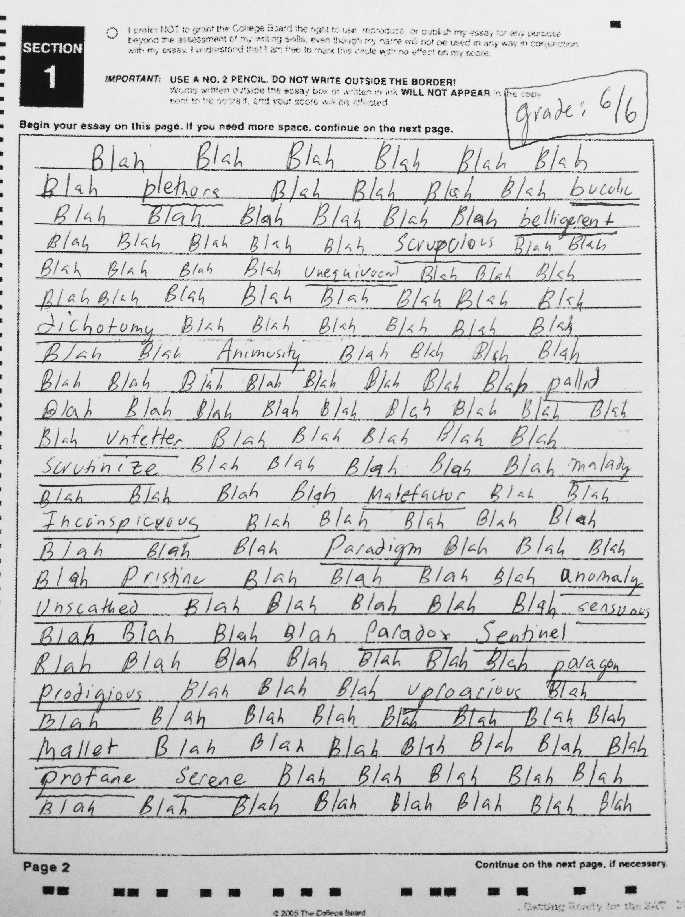 SECTION
1
I prefer NOT to grant the College Board the right to use, reproduce, or publish my essay for any purpose
beyond the assessment of my writing skills, even though my name will not be used in any way in conjunction
with my essay. I understand that I am free to mark this circle with no effect on my score.
IMPORTANT: USE A NO. 2 PENCIL. DO NOT WRITE OUTSIDE THE BORDER!
Words written outside the essay box or written in ink WILL NOT APPEAR in the copy
sent to be scored, and your score will be affected.
grade: 6/6
Begin your essay on this page. If you need more space, continue on the next page.
Blah Blah Blah Blah Blah Blah
Blah plethora Blah Blah Blah Blah bucolic
Blah Blah Blah Blah Blah Blah belligerent
Blah Blah Blah Blah Blah Scrupulous Blah Blah
Blah Blah Blah Blah unequivocal Blah Blah Blah
Blah Blah Blah Blah Blah Blah Blah Blah
dichotomy Blah Blah Blah Blah Blah Blah
Blah Blah Animosity Blah Blah Blah Blah
Blah Blah Blah Blah Blah Blah Blah Blah pallid
Blah Blah Blah Blah Blah Blah Blah Blah Blah
Blah unfetter Blah Blah Blah Blah Blah
Scrutinize Blah Blah Blah Blah Blah malady
Blah Blah Blah Blah Malefactor Blah Blah
Inconspicuous Blah Blah Blah Blah Blah
Blah Blah Blah Paradigm Blah Blah Blah
Blah Pristine Blah Blah Blah Blah anomaly
Unscathed Blah Blah Blah Blah Blah sensuous
Blah Blah Blah Blah Paradox Sentinel
Blah Blah Blah Blah Blah Blah Blah paragon
Prodigious Blah Blah Blah uproarious Blah
Blah Blah Blah Blah Blah Blah Blah Blah
Mallet Blah Blah Blah Blah Blah Blah Blah
profane Serene Blah Blah Blah Blah Blah
Blah Blah Blah Blah Blah Blah Blah Blah
Page 2
Continue on the next page, if necessary.
© 2005 The College Board
Getting Ready for the SAT